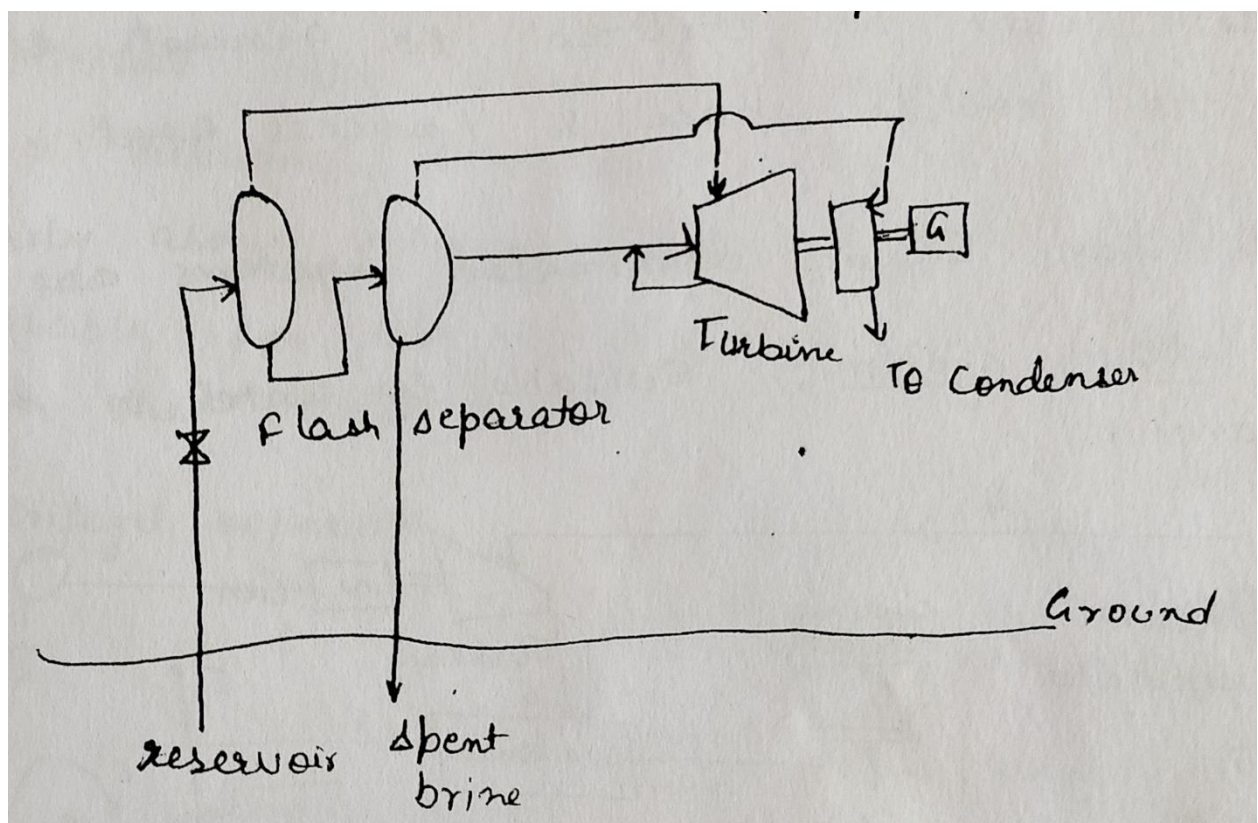 G
Turbine
To Condenser
Flash separator
Ground
reservoir
spent
brine